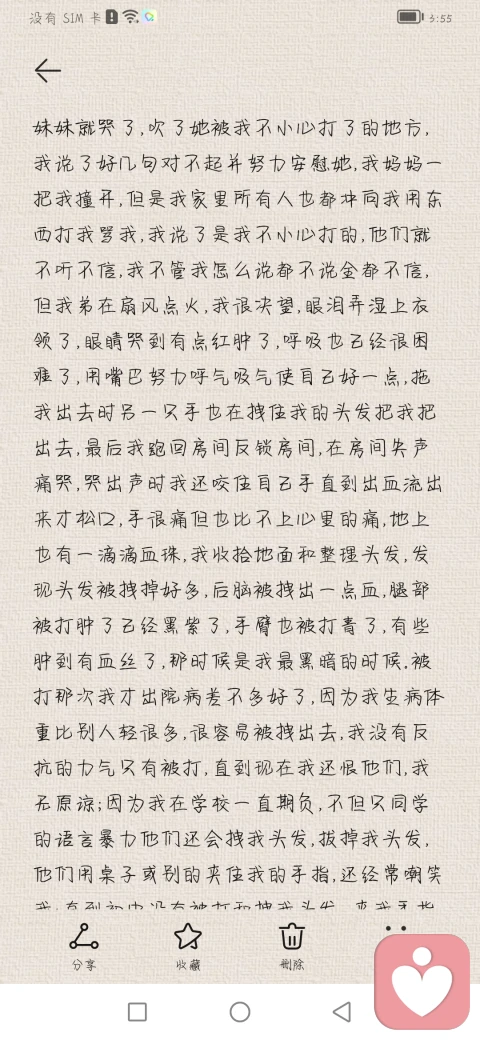 没有 SIM 卡 3:55
妹妹就哭了,吹了她被我不小心打了的地方,
我说了好几句对不起并努力安慰她,我妈妈一
把我撞开,但是我家里所有人也都冲向我用东
西打我骂我,我说了是我不小心打的,他们就
不听不信,我不管我怎么说都不说全都不信,
但我弟在扇风点火,我很决望,眼泪弄湿上衣
领了,眼睛哭到有点红肿了,呼吸也已经很困
难了,用嘴巴努力呼气吸气使自己好一点,拖
我出去时另一只手也在拽住我的头发把我把
出去,最后我跑回房间反锁房间,在房间失声
痛哭,哭出声时我还咬住自己手直到出血流出
来才松口,手很痛但也比不上心里的痛,地上
也有一滴滴血珠,我收拾地面和整理头发,发
现头发被拽掉好多,后脑被拽出一点血,腿部
被打肿了已经黑紫了,手臂也被打青了,有些
肿到有血丝了,那时候是我最黑暗的时候.被
打那次我才出院病差不多好了,因为我生病体
重比别人轻很多,很容易被拽出去,我没有反
抗的力气只有被打,直到现在我还恨他们,我
无原谅;因为我在学校一直期负,不但只同学
的语言暴力他们还会拽我头发,拔掉我头发,
他们用桌子或别的夹住我的手指,还经常嘲笑
我;直到初中没有被打和拽我头发,夹我手指
分享 收藏 删除